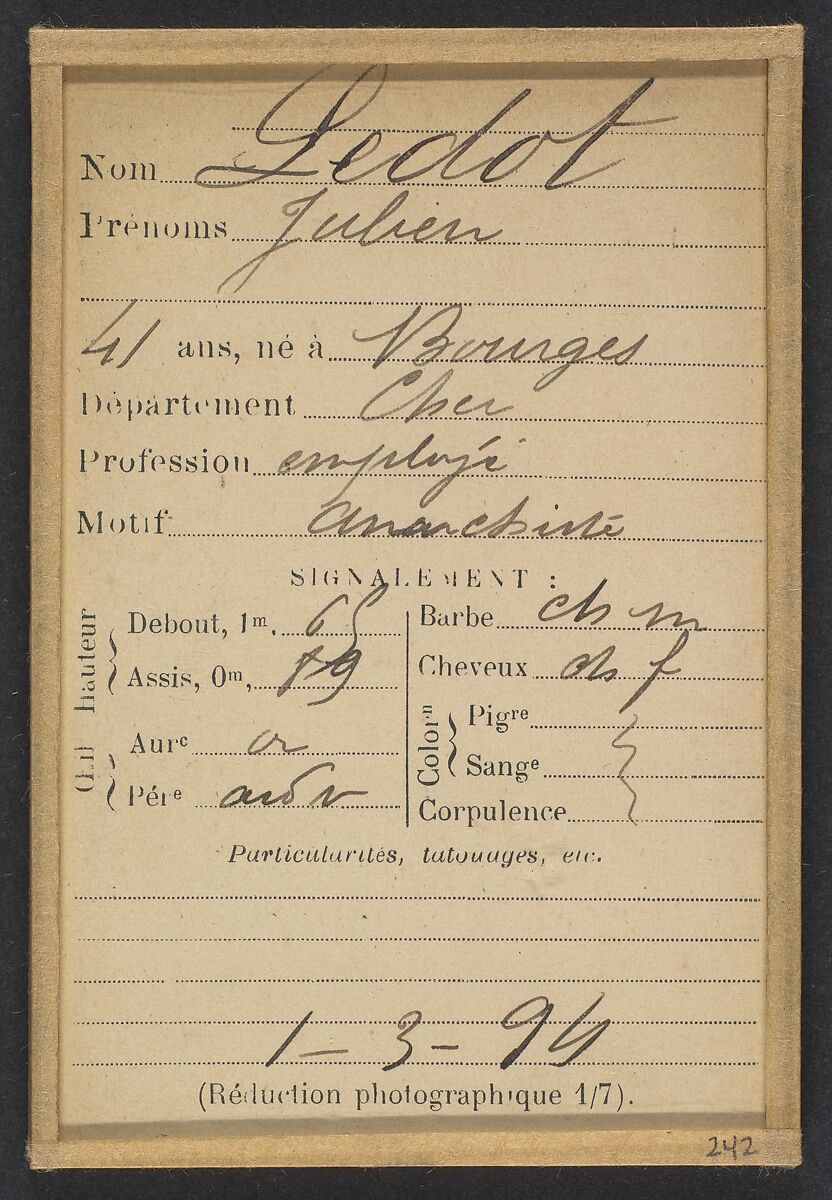 Nom Ledot
Prénoms Julien
41 ans, né à Bourges
Département Cher
Profession employé
Motif anarchiste
SIGNALEMENT :
Hauteur
Debout, 1m, 65
Assis, 0m, 89
Œil
Aure or
Pére
Barbe ch m
Cheveux ch f
Colorn
Pigre
Sange
Corpulence
Particularités, tatouages, etc.
1-3-94
(Réduction photographique 1/7).
242